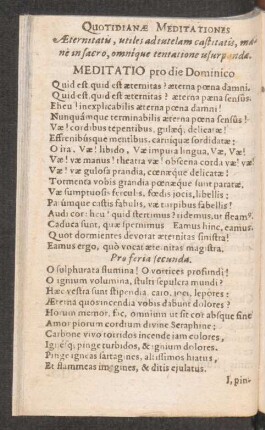 QUOTIDIANÆ MEDITATIONES
Æternitatis, utiles ad tutelam castitatis, ma-
nè in sacro, omnique tentatione usurpandæ.
MEDITATIO pro die Dominico
Quid est quid est æternitas? æterna pœna damni.
Quid est, quid est æternitas? æterna pœna sensûs.
Eheu! inexplicabilis æterna pœna damni!
Nunquámque terminabilis æterna pœna sensûs!
Væ! cordibus tepentibus, gulæq; delicatæ!
Effrenibúsque mentibus, carnique sordidatæ!
O ira. Væ! libido, Væ impura lingua, Væ, Væ!
Væ! væ manus! theatra væ! obscena corda væ! væ!
Væ! væ gulosa prandia, cœnæque delicatæ!
Tormenta vobis grandia pœnæque sunt paratæ.
Væ sumptuosis ferculis, fœdis jocis, libellis:
Parúmque castis fabulis, væ turpibus fabellis!
Audi cor: heu! quid stertimus? ridemus, ut fleamus.
Caduca sunt, quæ spernimus Eamus hinc, eamus.
Quot dormientes devorat æternitas sinistra!
Eamus ergo, quò vocat æternitas magistra.
Pro feria secunda.
O sulphurata flumina! O vortices profundi!
O ignium volumina, stulti sepulcra mundi?
Hæc vestra sunt stipendia. caro, joci, lepores:
Æterna quos incendia vobis dabunt dolores?
Horum memor, sic, omnium ut sit cor absque sine
Amor piorum cordium divine Seraphine:
Carbone vivo torridos incende jam colores,
Ignésq; pinge turbidos, & ignium dolores.
Pinge igneas sartagines, altissimos hiatus,
Et flammeas imagines, & ditis ejulatus.
I, pin-